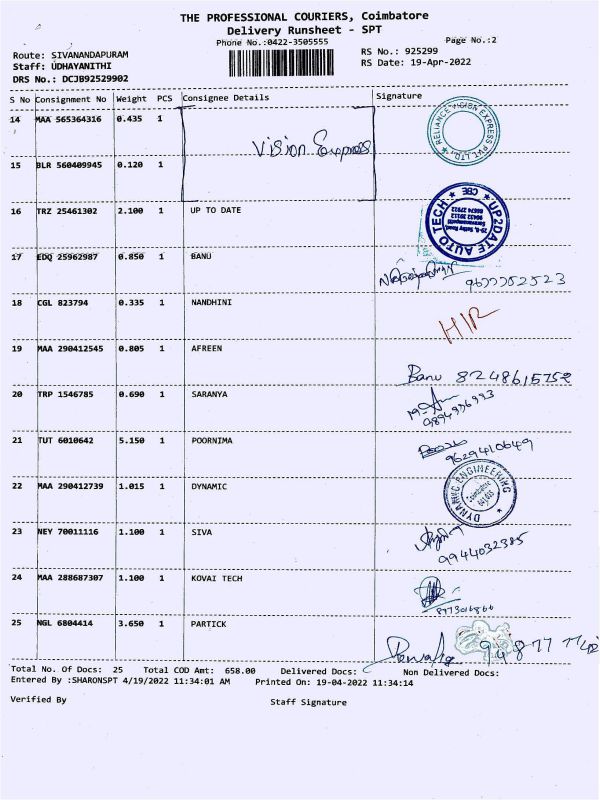 THE PROFESSIONAL COURIERS, Coimbatore
Delivery Runsheet - SPT
Phone No.:0422-3505555
Page No.:2
Route: SIVANANDAPURAM
RS No.: 925299
Staff: UDHAYANITHI
RS Date: 19-Apr-2022
DRS No.: DCJB92529902
S No Consignment No Weight PCS Consignee Details Signature
14 MAA 565364316 0.435 1
RELIANCE VISION EXPRESS PVT. LTD.
Vision Express
15 BLR 560409945 0.120 1
16 TRZ 25461302 2.100 1 UP TO DATE
UP2DATE AUTO TECH CBE
17 EDQ 25962987 0.850 1 BANU
9677752523
18 CGL 823794 0.335 1 NANDHINI
19 MAA 290412545 0.805 1 AFREEN
Banu 8248615752
20 TRP 1546785 0.690 1 SARANYA
9894936993
21 TUT 6010642 5.150 1 POORNIMA
9629410649
22 MAA 290412739 1.015 1 DYNAMIC
DYNAMIC ENGINEERING Coimbatore
23 NEY 70011116 1.100 1 SIVA
9944032385
24 MAA 288687307 1.100 1 KOVAI TECH
25 NGL 6804414 3.650 1 PARTICK
Total No. Of Docs: 25 Total COD Amt: 658.00 Delivered Docs: Non Delivered Docs:
Entered By :SHARONSPT 4/19/2022 11:34:01 AM Printed On: 19-04-2022 11:34:14
Verified By
Staff Signature